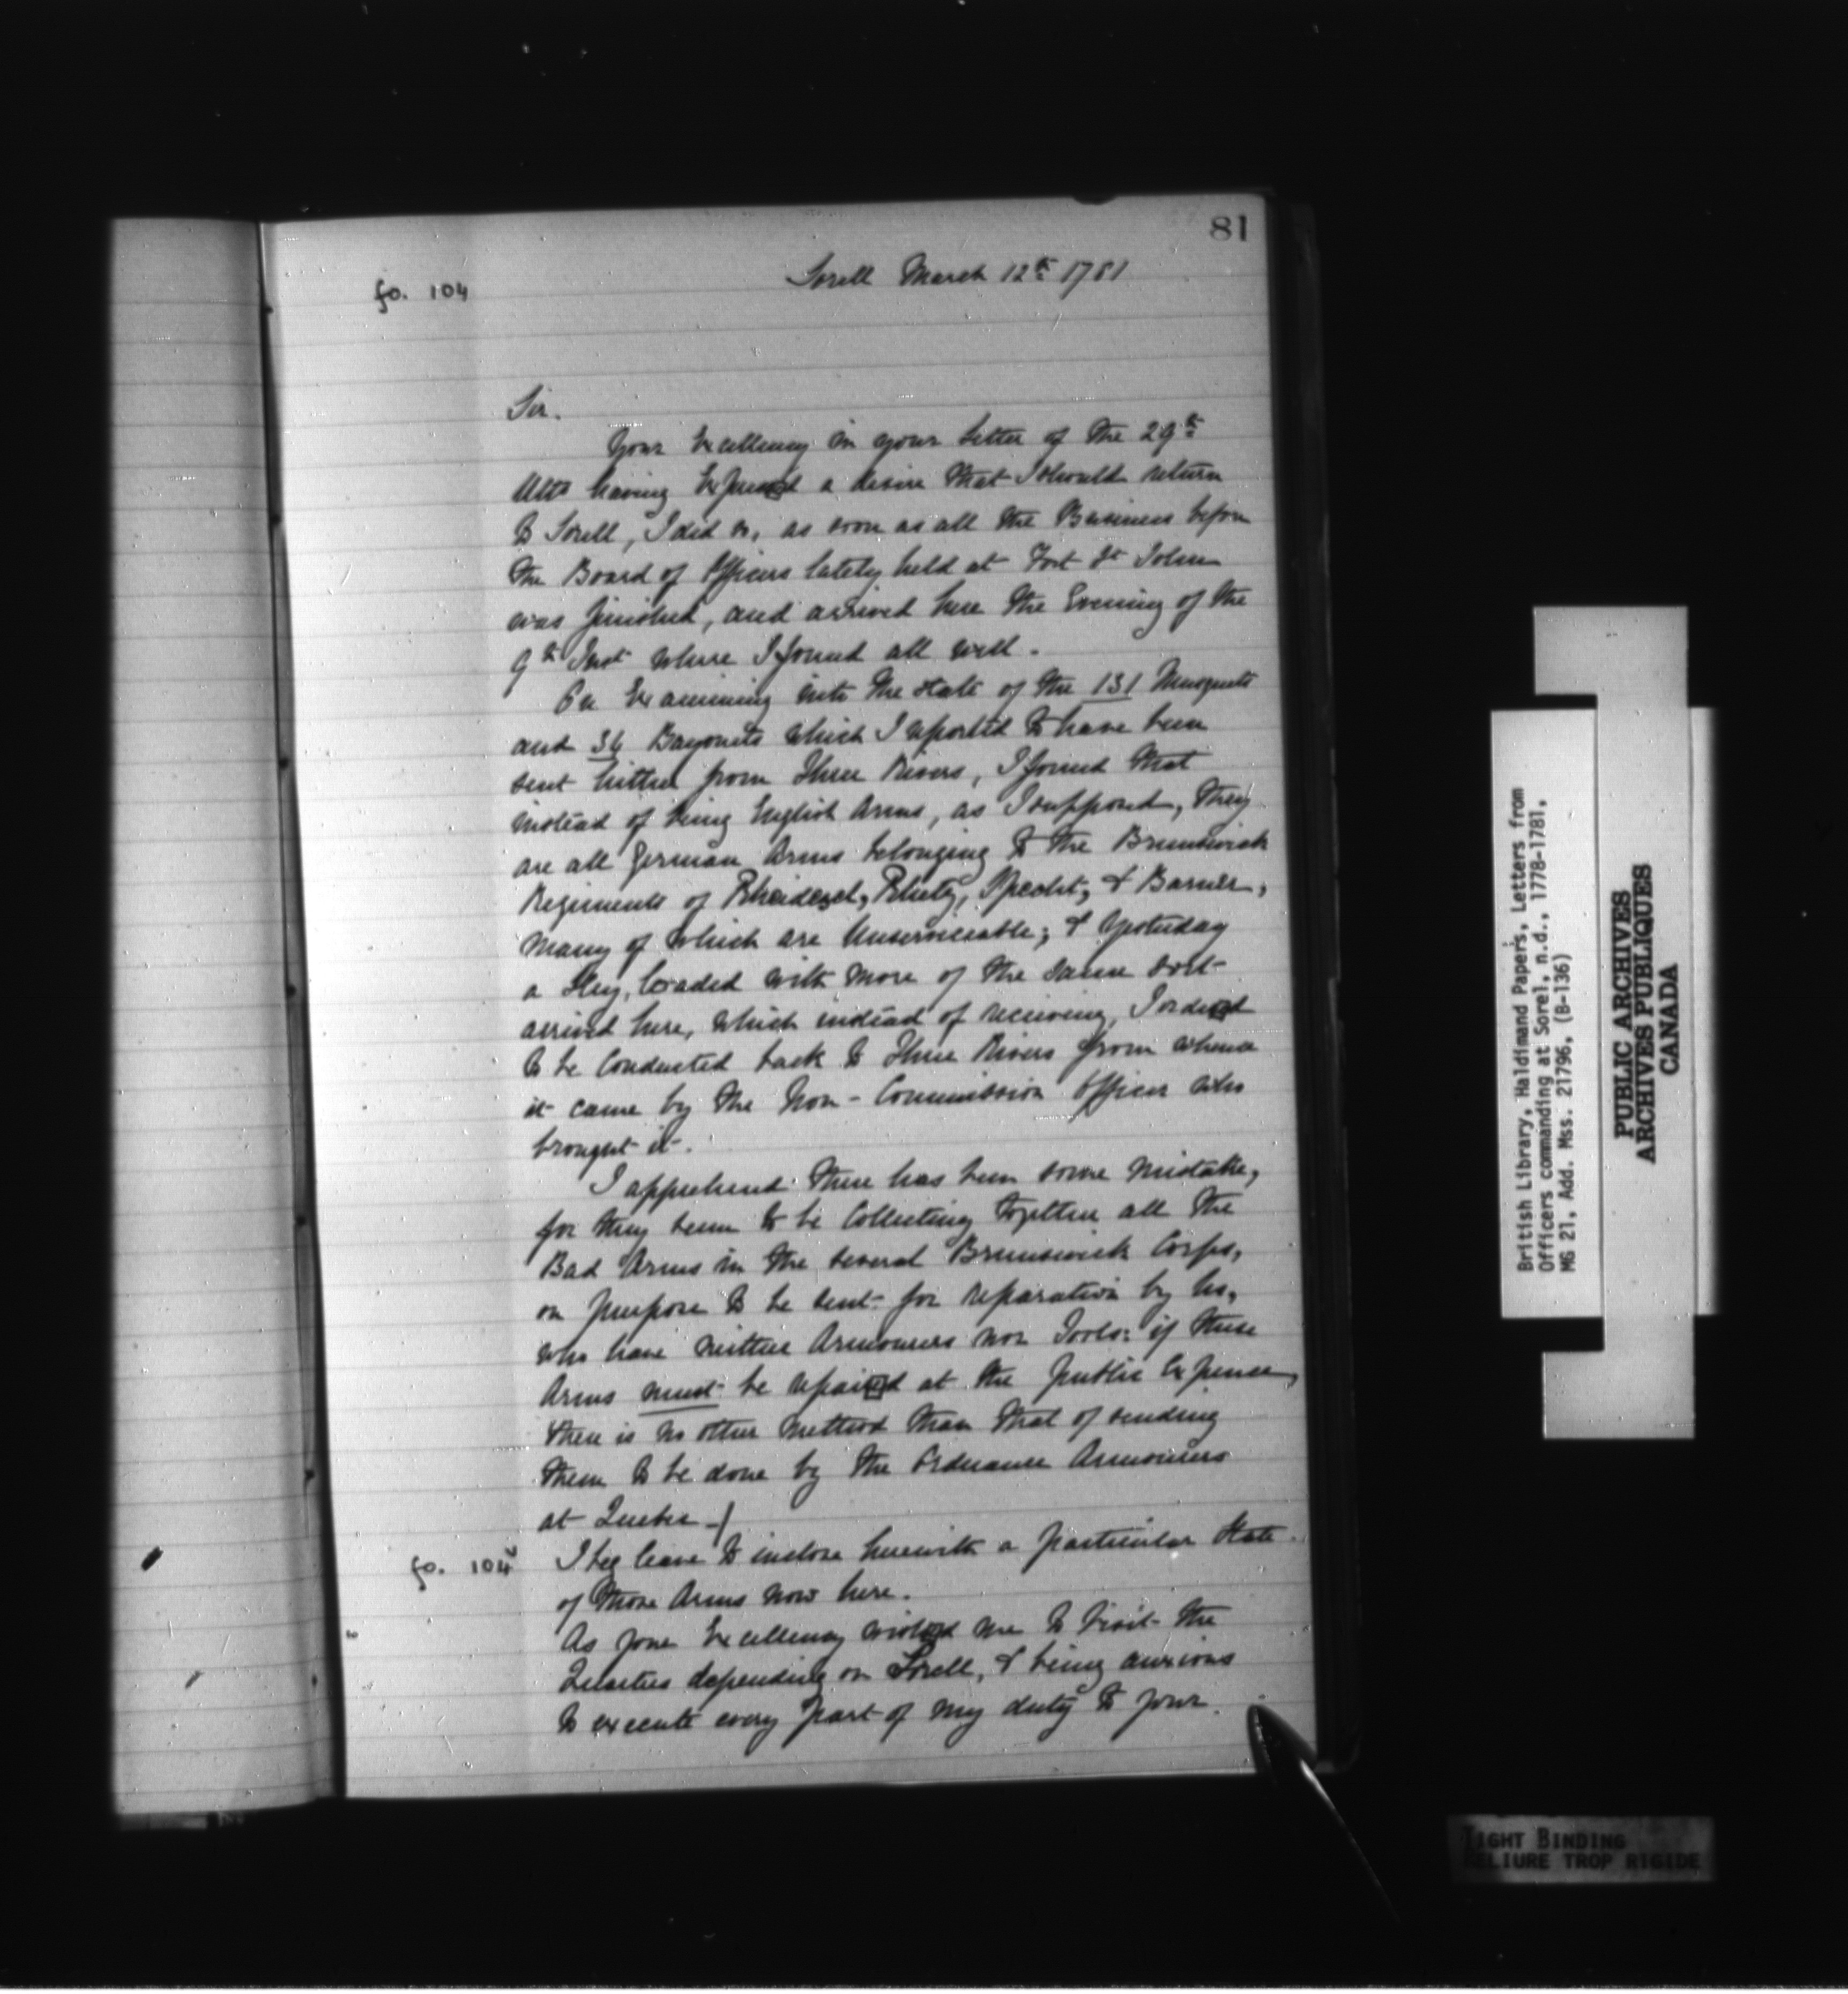 81
fo. 104
Sorell March 12th 1781
Sir.
Your Excellency in your letter of the 29th
Ulto having Expressed a desire that I should return
to Sorell, I did so, as soon as all the Business before
the Board of Officers lately held at Fort St Johns
was finished, and arrived here the Evening of the
9th Inst where I found all well.
On Examining into the state of the 131 Musquets
and 36 Bayonets which I reported to have been
sent hither from Three Rivers, I found that
instead of being English Arms, as I supposed, they
are all German Arms belonging to the Brunswick
Regiments of Rheidezel, Rhetz, Specht, & Barner,
many of which are Unserviceable; & Yesterday
a Sley, loaded with more of the same sort
arrived here, which instead of receiving, I ordered
to be Conducted back to Three Rivers from whence
it came by the Non-Commission Officer who
brought it.
I apprehend there has been some mistake,
for they seem to be Collecting together all the
Bad Arms in the several Brunswick Corps,
on purpose to be sent for reparation by us,
who have neither Armourers nor Tools: if these
Arms must be repaired at the public Expence,
there is no other method than that of sending
them to be done by the Ordnance Armourers
at Quebec
fo. 104v
I beg leave to inclose herewith a particular State
of those Arms now here.
As your Excellency wished me to Visit the
Quarters depending on Sorell, & being anxious
to execute every part of my duty to your
British Library, Haldimand Papers, Letters from
Officers commanding at Sorel, n.d., 1778-1781,
MG 21, Add. Mss. 21796, (B-136)
PUBLIC ARCHIVES
ARCHIVES PUBLIQUES
CANADA
TIGHT BINDING
RELIURE TROP RIGIDE